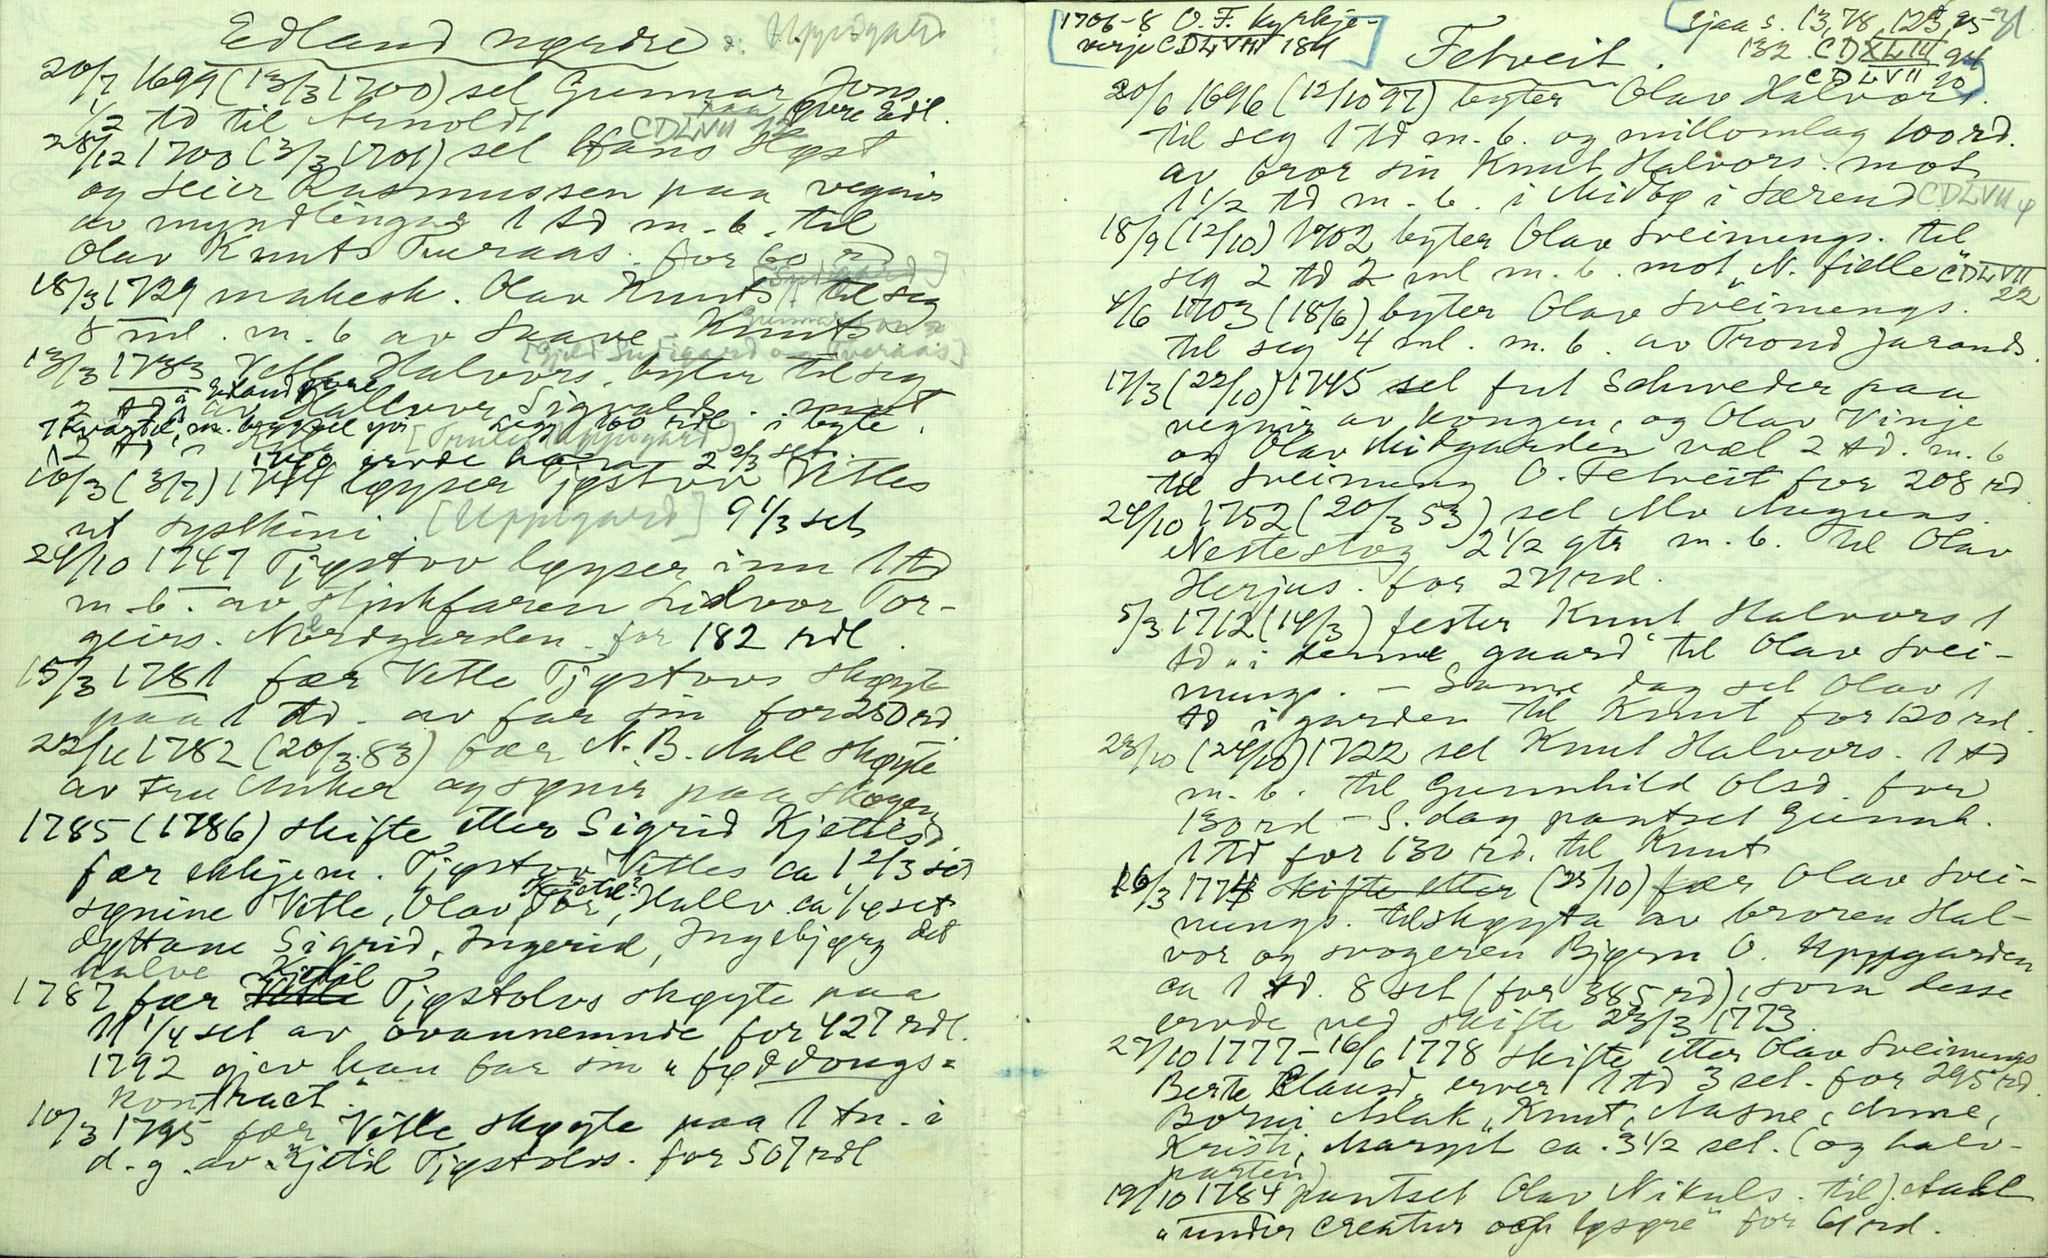 Edland nørdre d: Uppigard
20/7 1699 (13/3 1700) sel Gunnar Jons.
1/2 td til Arnoldt paa øvre Edl.
CDLVII 12
28/12 1700 (3/3 1701) sel Hans Høst
og Seier Rasmussen paa vegnir
av myndlingar 1 td m. b. til
Olav Knuts Tveraas. for 60 rd
[Sudigard]
18/3 1729 makesk. Olav Knuts. til seg
8 ml. m. b av Saave Knuts
Gunnars
[Sudigard og Tveraas]
13/3 1733 Vetle Halvors. byter til seg
2 td i Edland øvre av Hallvor Sigvalds. mot
1 kvartel m. bygsel yvi seg 100 rdl i byte.
[Uppigard]
1740 ervde 2 2/3 set.
16/3 (3/7) 1744 løyser Tjøstov Vetles
ut syskini [Uppigard] 9 1/3 set
24/10 1747 Tjøstov løyser inn 1 td
m. b. av Stjukfaren Sidvor Tor-
geirs. Nordgarden for 182 rdl.
15/3 1781 fær Vetle Tjøstovs skøyte
paa 1 td. av far sin for 250 rd
22/11 1782 (20/3 83) fær N. B. Aall skøyte
av Fru Anker og syner paa skogen
1785 (1786) skifte etter Sigrid Kjetilsd
fær ekkjem. Tjøstov Vetles ca 1 2/3 set
synine Vetle, Olav, Tor, Kjetil? Hallv. ca 1/4 set
døttane Sigrid, Ingerid, Ingebjørg det
halve
1787 fær Vetle Kjetil Tjøstolvs skøyte paa
11 1/4 set av ovannemnde for 427 rdl.
1792 gjev han far sin "føddougs=
kontract".
10/3 1795 fær Vetle skøyte paa 1 tn. i
d. g. av Kjetil Tjøstolvs. for 507 rdl
1706-8 O. F. kyrkje-
verje CDLVIII 184
Sjaa s. 13, 78, 123, 95- 31
132 CDXLIII 94
CDLVII 20
Felveit.
20/6 1696 (12/10 97) byter Olav Halvors.
til seg 1 td m. b. og millomlag 100 rd.
av bror sin Knut Halvors. mot
1 1/2 td m. b. i Midbø i Særend CDLVII 4
18/9 (12/10) 1702 byter Olav Sveinungs. til
seg 2 td 2 ml m. b. mot N. fielle CDLVII
22
4/6 1703 (18/6) byter Olav Sveinungs.
til seg 4 ml. m. b. av Trond Jarands.
17/3 (22/10) 1745 sel fut Schweder paa
vegnir av kongen, og Olav Vinje
og Olav Midgarden væl 2 td. m. b
til Sveinung O. Felveit for 208 rd
24/10 1752 (20/3 53) sel Alv Auguns.
Nestestog 2 1/2 gtr m. b. til Olav
Herjus. for 27 rd.
5/3 1712 (14/3) fester Knut Halvors 1
td "i denne gaard" til Olav Svei-
nungs. – Same dag sel Olav 1
td i garden til Knut for 120 rd.
23/10 (24/10) 1722 sel Knut Halvors. 1 td
m. b. til Gunnhild Olsd. for
130 rd – S. dag pantset Gunnh.
1 td for 130 rd. til Knut
16/3 1774 skifte etter (25/10) fær Olav Svei-
nungs. tilskøyta av broren Hal-
vor og svogeren Bjørn O. Uppgarden
ca 1 td. 8 set (for 385 rd), som desse
ervde ved skifte 23/3 1773.
27/10 1777 – 16/6 1778 skifte etter Olav Sveinungs
Berte Clausd. erver 1 td 3 set. for 295 rd.
Borni Aslak, Knut, Aasne, Anne,
Kristi, Margit ca. 3 1/2 set. (og halv-
parten)
19/10 1784 pantset Olav Nikuls. til J. Aall
"under Creatur och løsøre" for 61 rd.